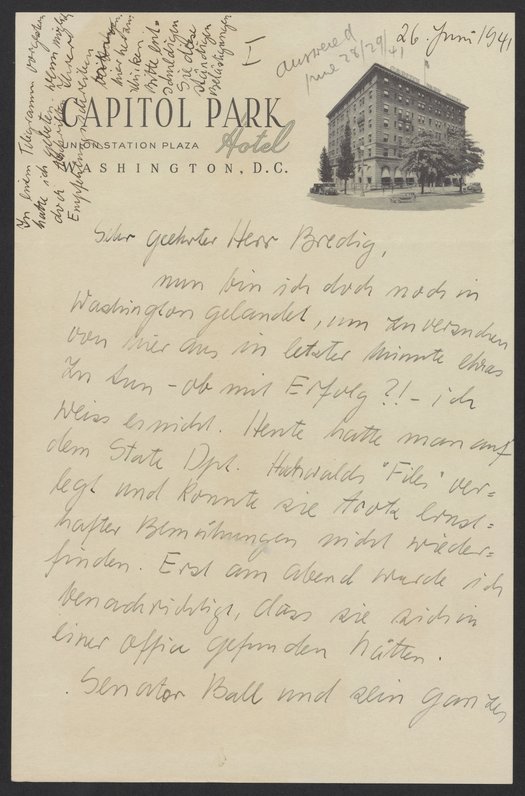 26. Juni 1941
answered
June 28/29/41
I
In einem Telegramm vorgestern
hatte ich gebeten, wenn möglich
doch
Empfehlungsschreiben
hier
Bitte ent-
schuldigen
Sie diese
ständigen
Belästigungen
CAPITOL PARK
Hotel
UNION STATION PLAZA
WASHINGTON, D.C.
Sehr geehrter Herr Bredig,
nun bin ich doch noch in
Washington gelandet, um zu versuchen
von hier aus in letzter Minute etwas
zu tun – ob mit Erfolg ?! – ich
weiss es nicht. Heute hatte man auf
dem State Dpt. Hochwalds "Files" ver=
legt und konnte sie trotz ernst=
hafter Bemühungen nicht wieder=
finden. Erst am Abend wurde ich
benachrichtigt, dass sie sich in
einer Office gefunden hätten.
Senator Ball und sein ganzes